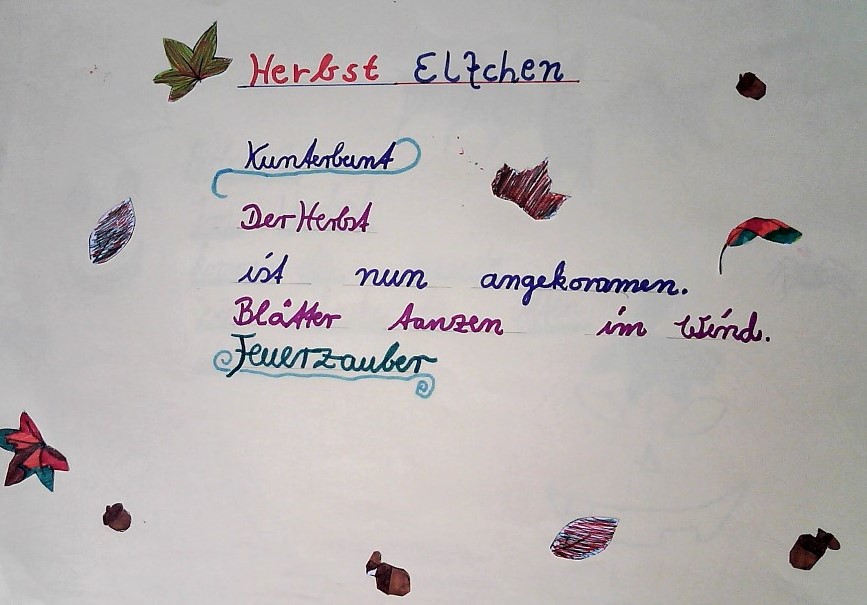 Herbst Elfchen
Kunterbunt
Der Herbst
ist nun angekommen.
Blätter tanzen im Wind.
Feuerzauber